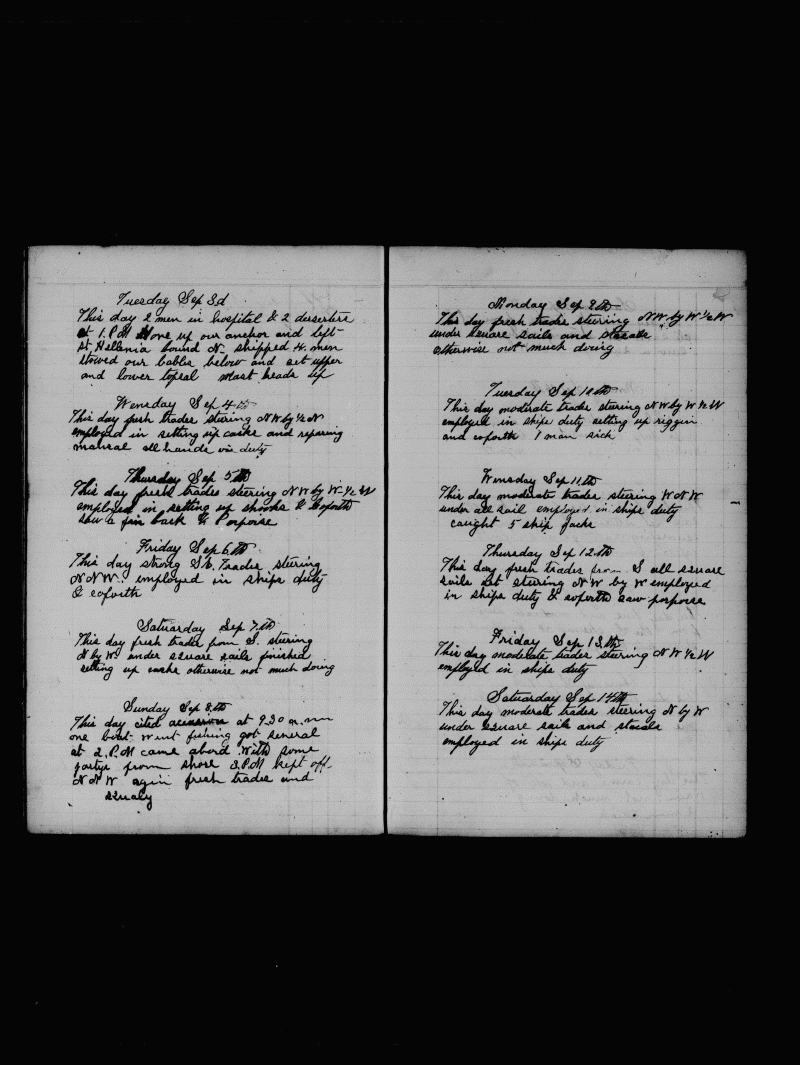 Tuesday Sep 3d
This day 2 men in hospital & 2 desserters
at 1. P.M Hove up our anchor and left
St Hellenia bound N. shipped 4. men
stowed our cables below and set upper
and lower topsal mast heads up
Wensday Sep 4 th
This day fresh trades steering N W by ½ N
employed in setting up casks and reparing
mansal all hands on duty
Thursday Sep 5 th
This day fresh trades steering N W by W ½ W
employed in setting up shooks & coforth
saw a fin back & Porpose
Friday Sep 6.th
This day strong S.E. Trades steering
N N W. employed in ships duty
& coforth
Saturday Sep 7.th
This day fresh trades from S. steering
N by W under square sails finished
setting up casks otherwise not much doing
Sunday Sep 8.th
This day cited at 9.30 a.m
one boat went fishing got several
at 2.P.M came abord with some
partys from shore 3.P.M kept off
N N W again fresh trades and
squaly
Monday Sep 9 th
This day fresh trades steering N W by W ½ W
under square sails and
otherwise not much doing
Tuesday Sep 10 th
This day moderate trades steering N W by W ½ W
employed in ships duty setting up riggin
and coforth 1 man sick
Wensday Sep 11.th
This day moderate trades steering W N W
under all sail employed in ships duty
caught 5 skip jacks
Thursday Sep 12.th
This day fresh trades from S all square
sails set steering N W by W employed
in ships duty & coforth saw porpose
Friday Sep 13.th
This day moderate trades steering N W ½ W
employed in ships duty
Saturday Sep 14 th
This day moderate trades steering N by W
under square sails and
employed in ships duty